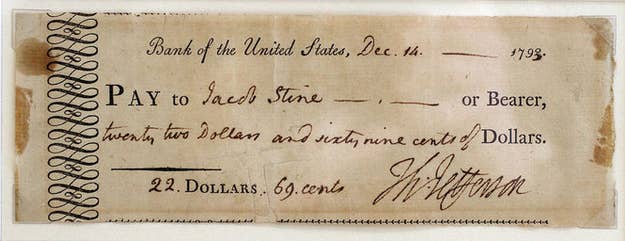 Bank of the United States, Dec. 14. — 1793.
Pay to Jacob Stine — . — or Bearer,
twenty two Dollars and sixty nine cents of Dollars.
22. Dollars. 69. cents Th: Jefferson